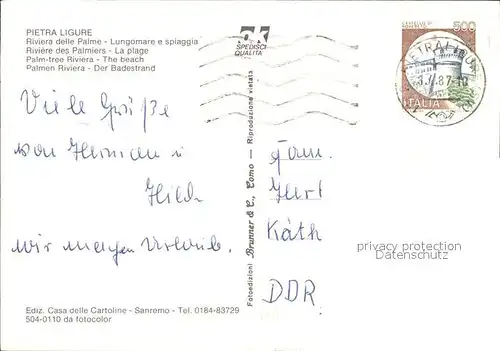 PIETRA LIGURE
Riviera delle Palme - Lungomare e spiaggia
Rivière des Palmiers - La plage
Palm-tree Riviera - The beach
Palmen Riviera - Der Badestrand
ok
SPEDISCI
QUALITÀ
500
ITALIA
Viele Grüße
von Herman u
Hilde
wir machen Urlaub.
Fotoedizioni Brunner & C., Como - Riproduzione vietata
Fam.
Kurt
Käth
DDR
privacy protection
Datenschutz
Ediz. Casa delle Cartoline - Sanremo - Tel. 0184-83729
504-0110 da fotocolor